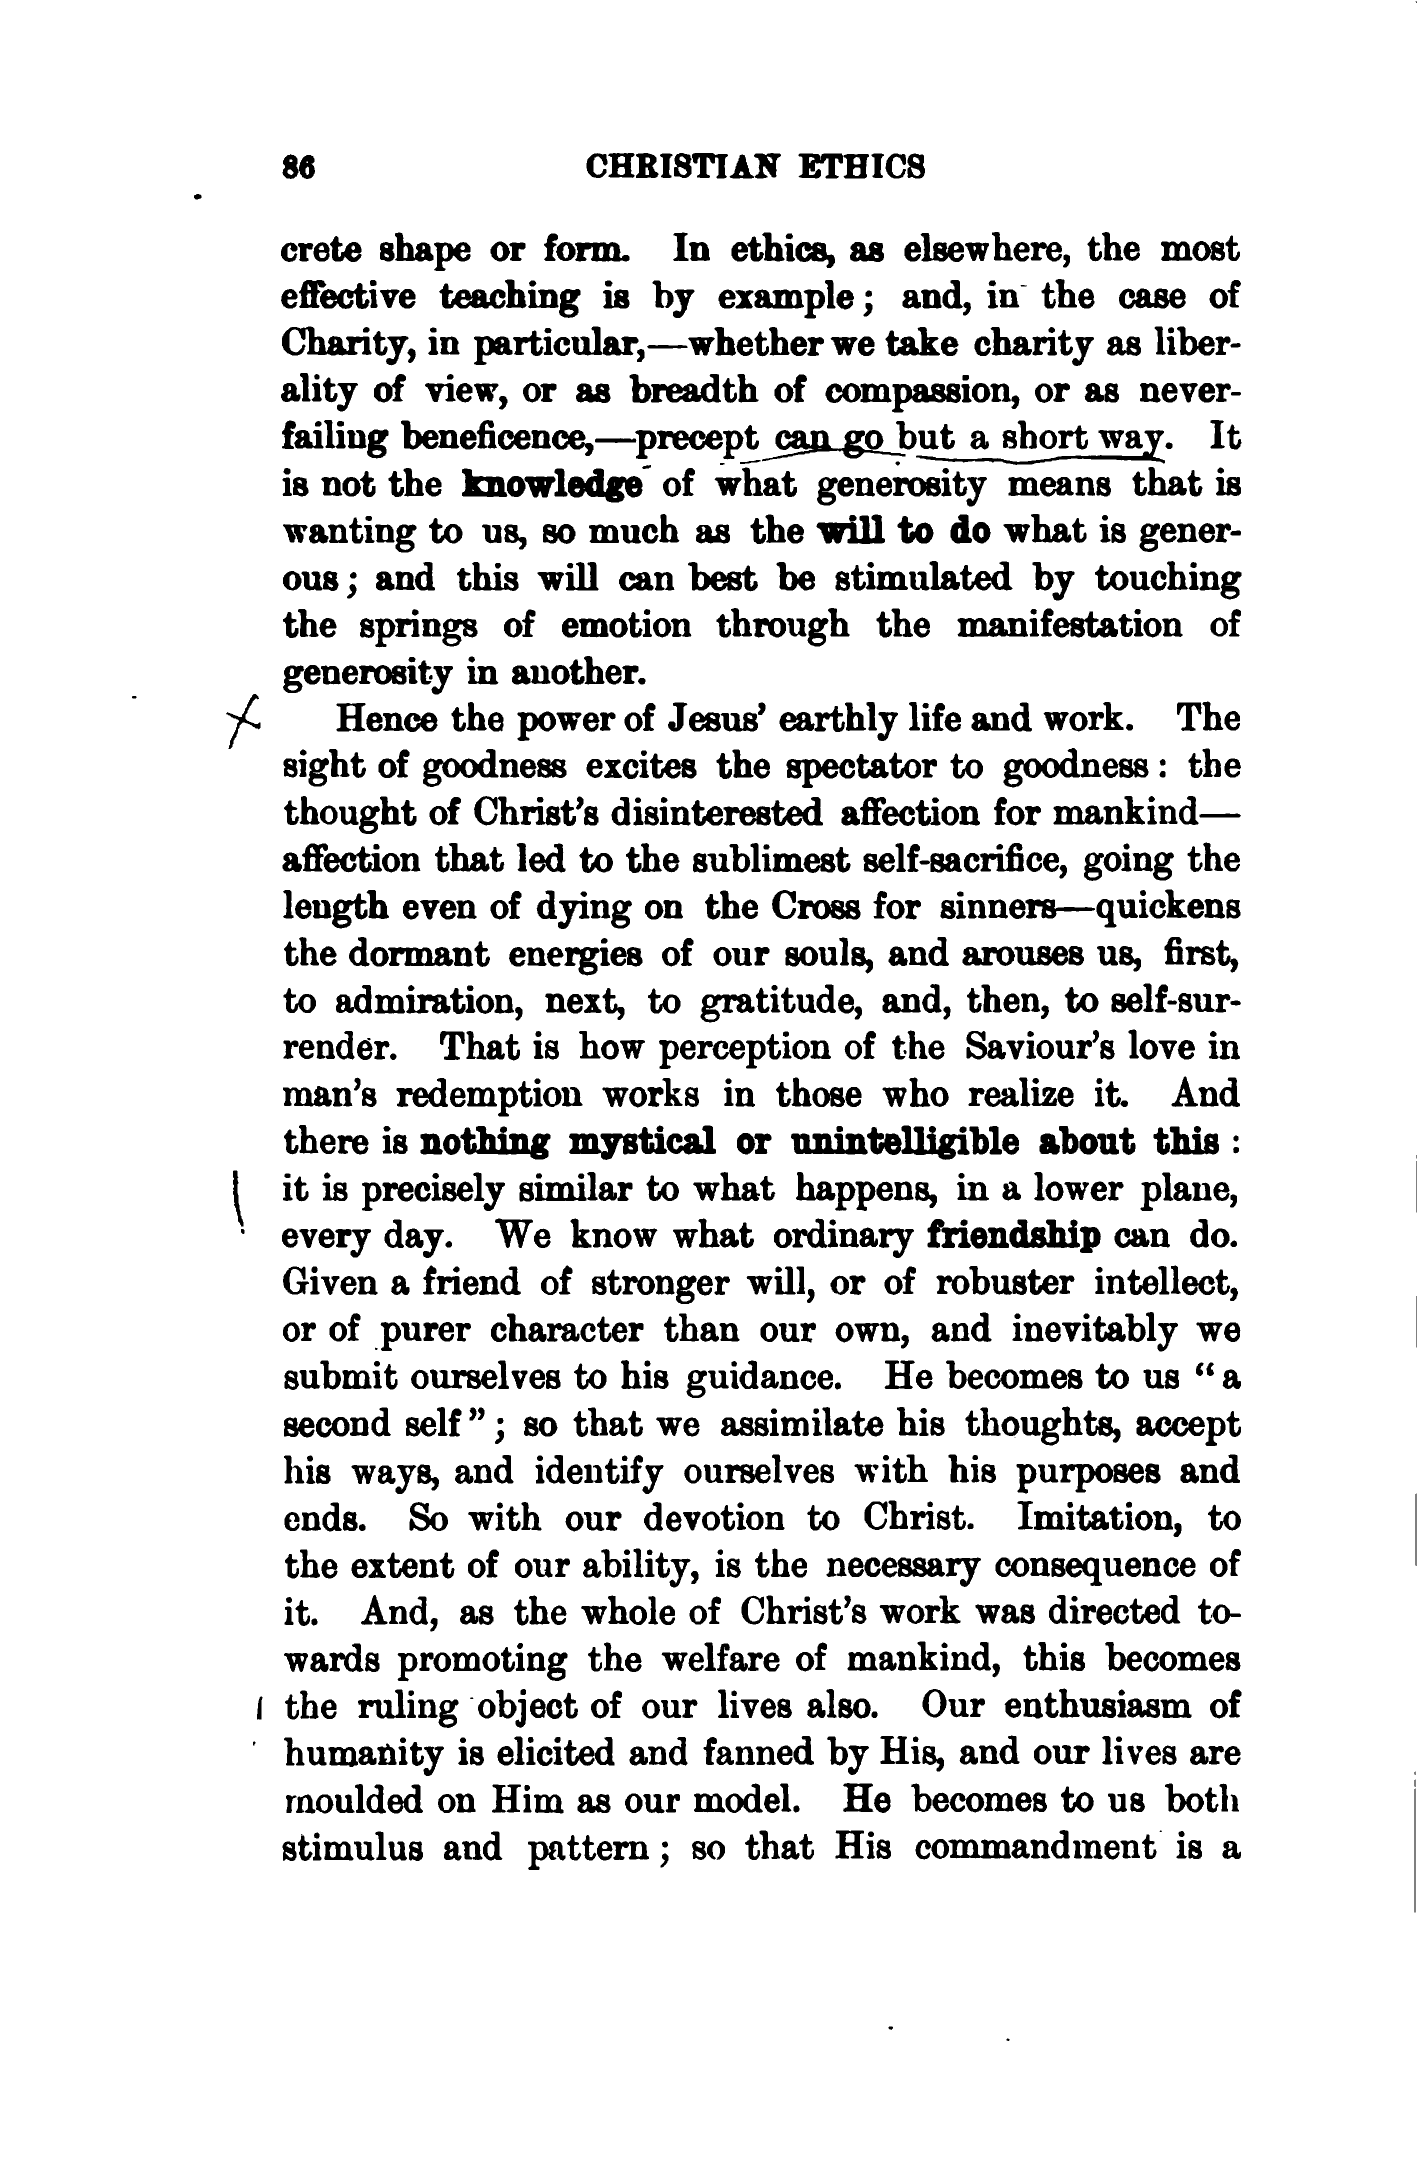 86 CHRISTIAN ETHICS
crete shape or form. In ethics, as elsewhere, the most
effective teaching is by example; and, in the case of
Charity, in particular,—whether we take charity as liber-
ality of view, or as breadth of compassion, or as never-
failing beneficence,—precept can go but a short way. It
is not the knowledge of what generosity means that is
wanting to us, so much as the will to do what is gener-
ous; and this will can best be stimulated by touching
the springs of emotion through the manifestation of
generosity in another.
Hence the power of Jesus' earthly life and work. The
sight of goodness excites the spectator to goodness: the
thought of Christ's disinterested affection for mankind—
affection that led to the sublimest self-sacrifice, going the
length even of dying on the Cross for sinners—quickens
the dormant energies of our souls, and arouses us, first,
to admiration, next, to gratitude, and, then, to self-sur-
render. That is how perception of the Saviour's love in
man's redemption works in those who realize it. And
there is nothing mystical or unintelligible about this:
it is precisely similar to what happens, in a lower plane,
every day. We know what ordinary friendship can do.
Given a friend of stronger will, or of robuster intellect,
or of purer character than our own, and inevitably we
submit ourselves to his guidance. He becomes to us "a
second self"; so that we assimilate his thoughts, accept
his ways, and identify ourselves with his purposes and
ends. So with our devotion to Christ. Imitation, to
the extent of our ability, is the necessary consequence of
it. And, as the whole of Christ's work was directed to-
wards promoting the welfare of mankind, this becomes
the ruling object of our lives also. Our enthusiasm of
humanity is elicited and fanned by His, and our lives are
moulded on Him as our model. He becomes to us both
stimulus and pattern; so that His commandment is a